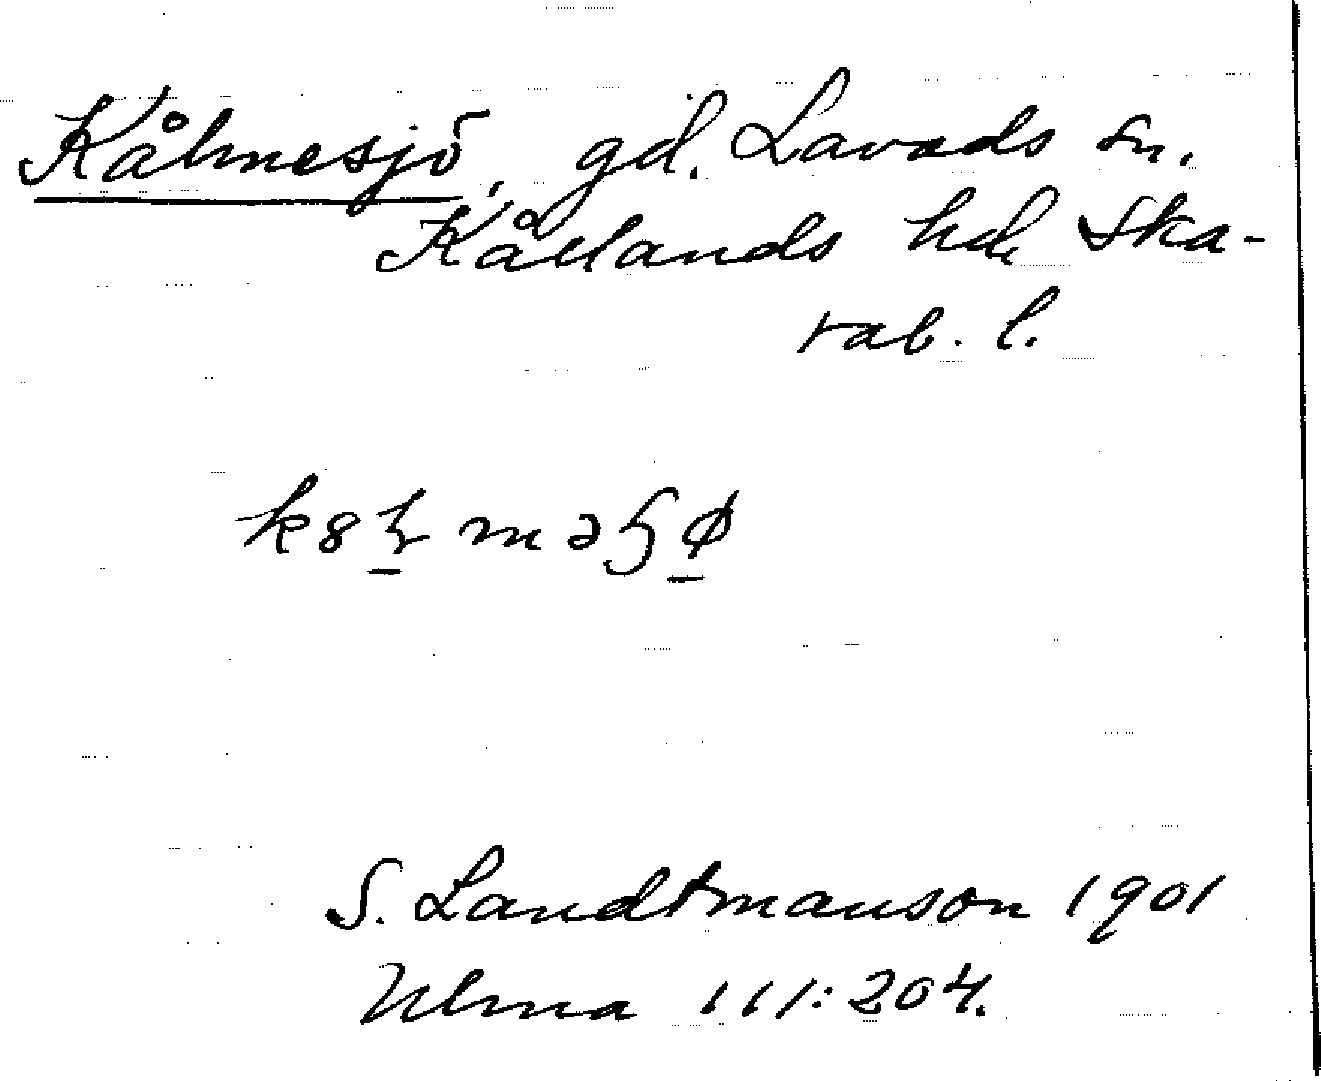 Kålmesjö, gd. Lavads sn.
Kållands hd. Ska-
rab. l.
S. Landtmanson 1901
Ulma 111:204.